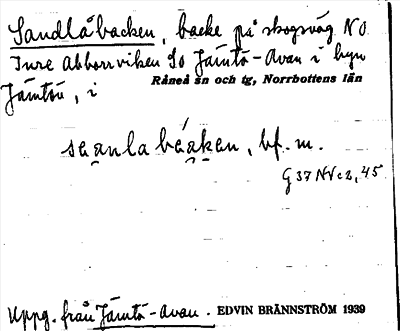 Sandlåbacken, backe på skogsväg NO
Inre Abborrviken SO Jämtö-Avan i byn
Råneå sn och tg, Norrbottens län
Jämtön, i
sɑanla báɑken, bf. m.
G 37 NV c 2, 45
Uppg. från Jämtö-Avan. EDVIN BRÄNNSTRÖM 1939